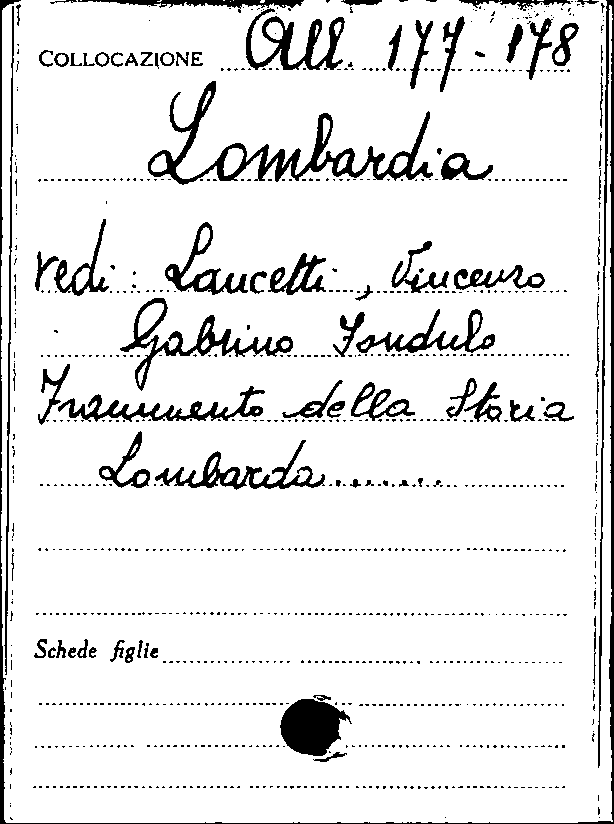 COLLOCAZIONE All. 177-178
Lombardia
vedi: Lancetti, Vincenzo
Gabrino Fondulo
Frammento della Storia
Lombarda.......
Schede figlie